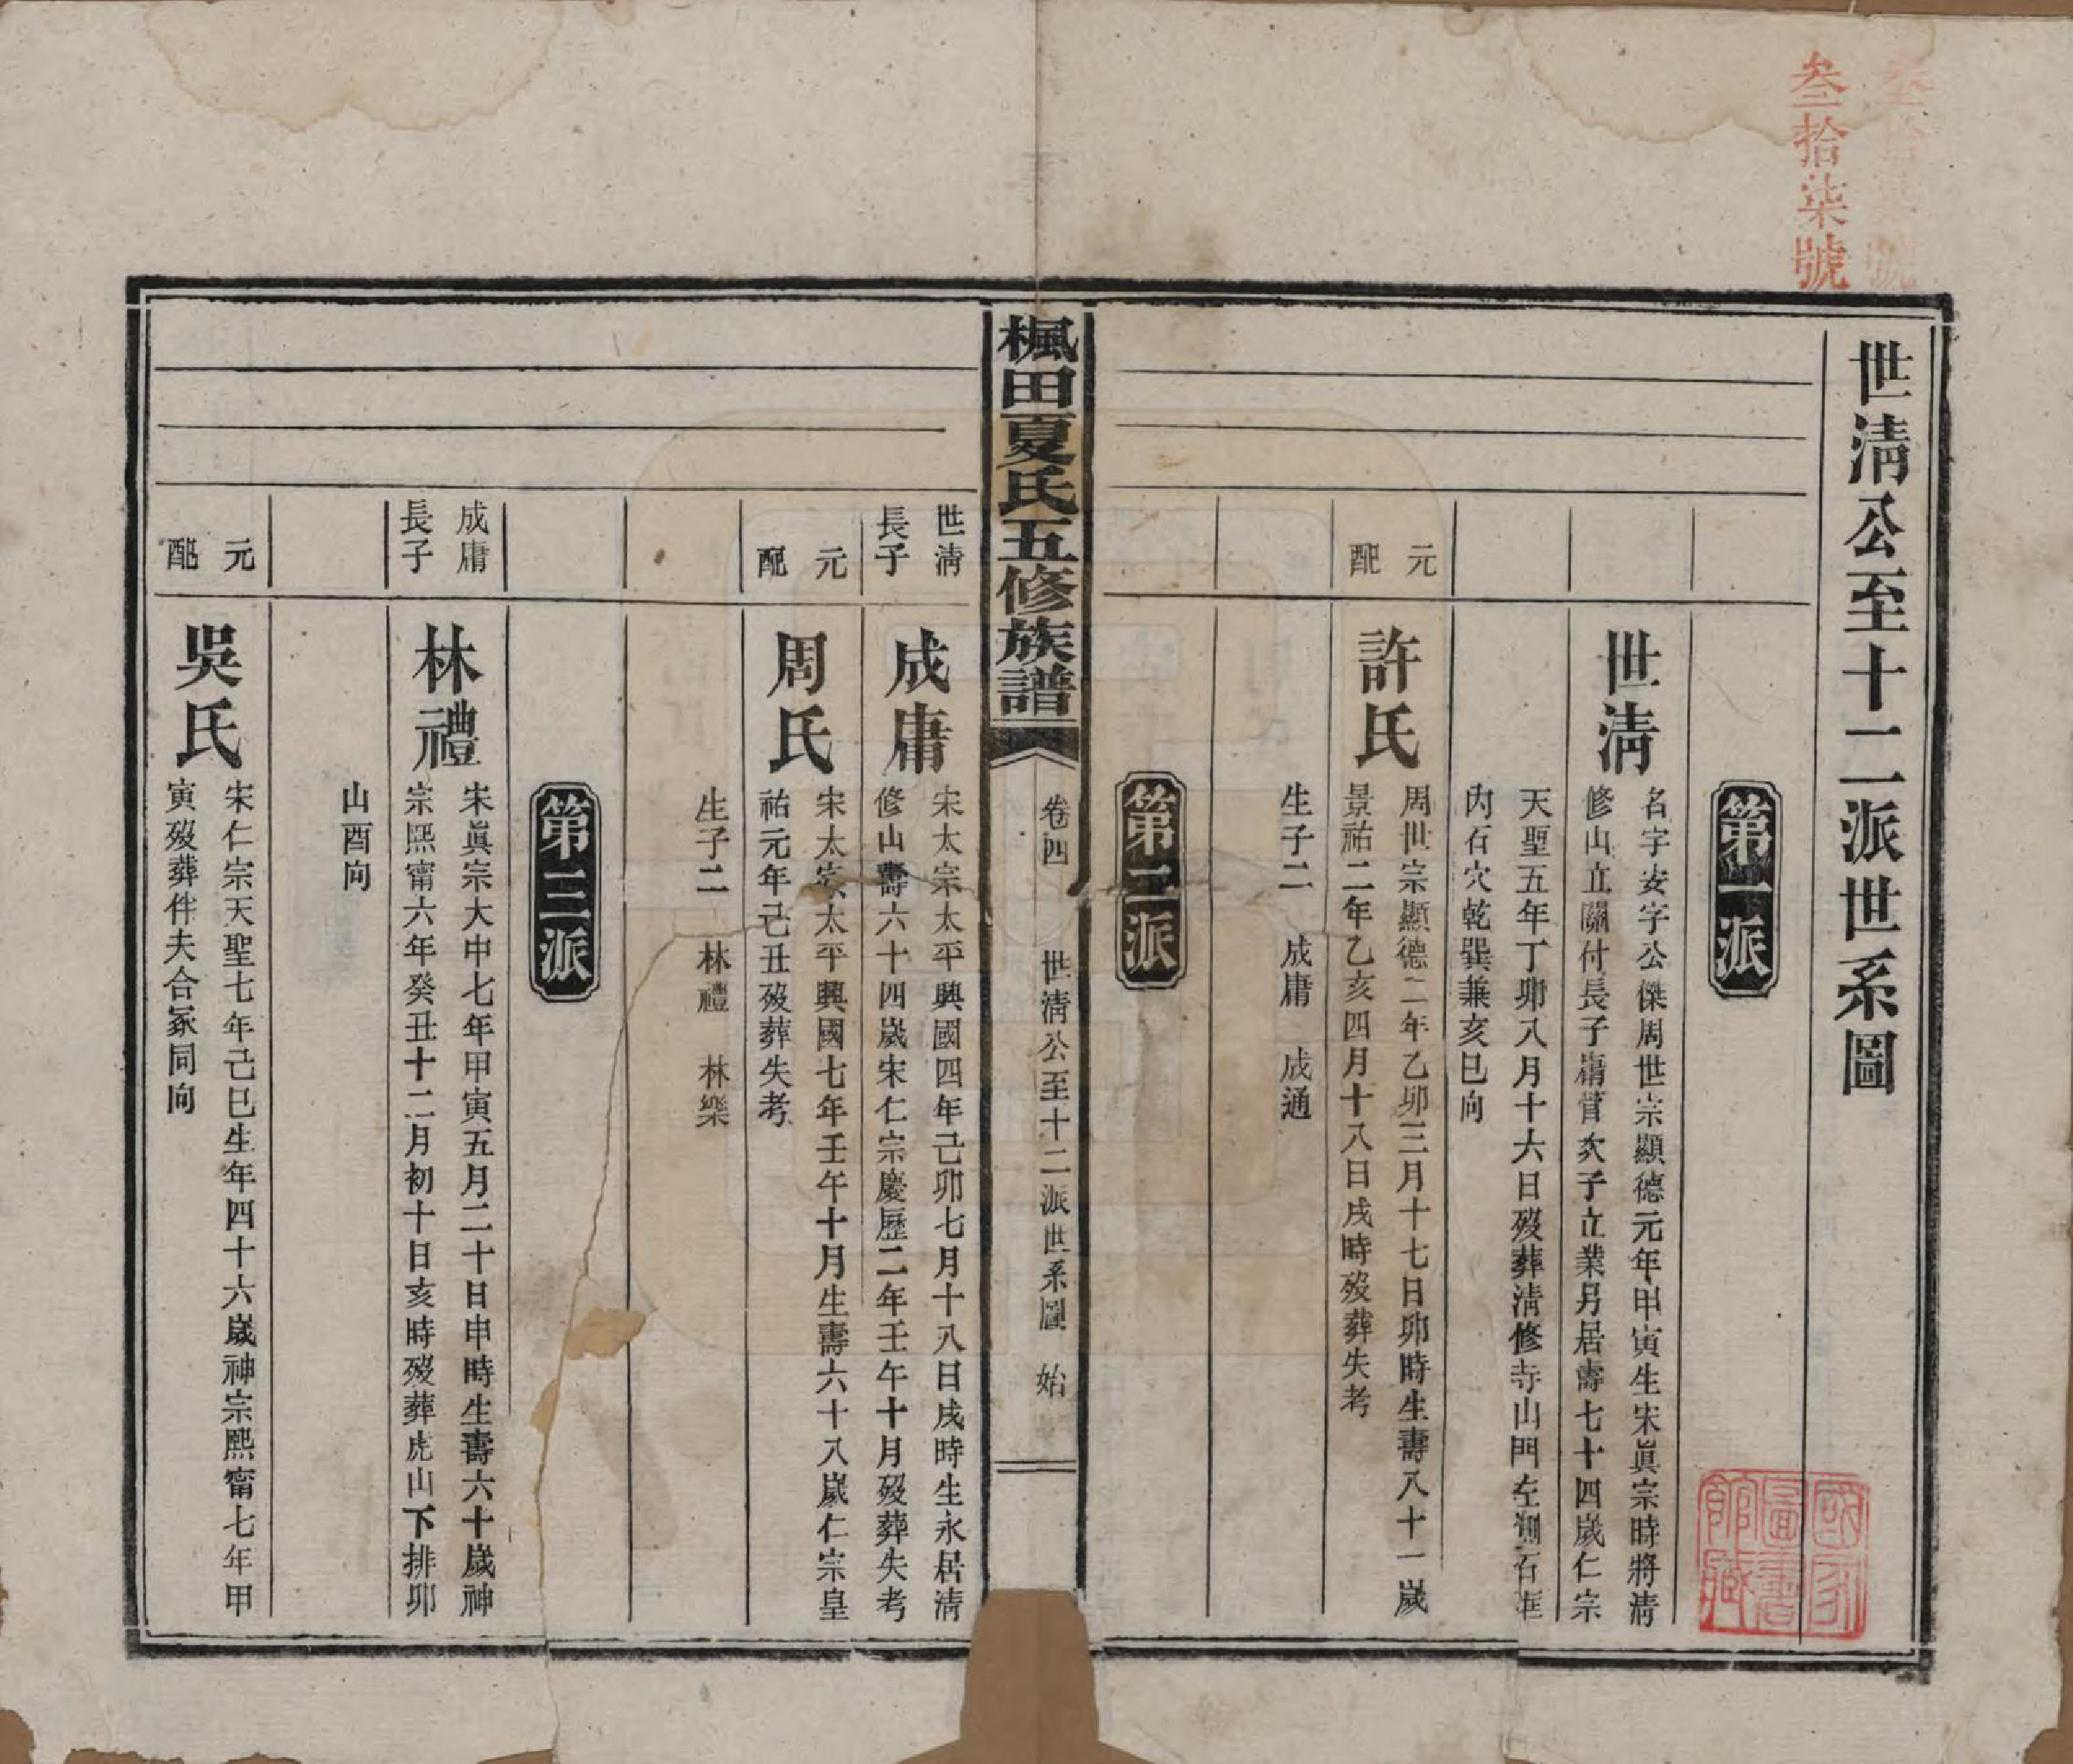 叁拾柒號
世清公至十二派世系圖
第一派
世清
名字安字公傑周世宗顯德元年甲寅生宋眞宗時將清
修山立關付長子庸管次子立業另居壽七十四歲仁宗
天聖五年丁卯八月十六日歿葬清修寺山門左側石框
內石穴乾巽兼亥巳向
元
配
許氏
周世宗顯德二年乙卯三月十七日卯時生壽八十一歲
景祐二年乙亥四月十八日戌時歿葬失考
生子二 成庸 成通
第二派
楓田夏氏五修族譜
卷四 世清公至十二派世系圖 始
世清
長子
成庸
宋太宗太平興國四年己卯七月十八日戌時生永居清
修山壽六十四歲宋仁宗慶歷二年壬午十月歿葬失考
元
配
周氏
宋太宗太平興國七年壬午十月生壽六十八歲仁宗皇
祐元年己丑歿葬失考
生子二 林禮 林樂
第三派
成庸
長子
林禮
宋眞宗大中七年甲寅五月二十日申時生壽六十歲神
宗熙甯六年癸丑十二月初十日亥時歿葬虎山下排卯
山酉向
元
配
吳氏
宋仁宗天聖七年己巳生年四十六歲神宗熙甯七年甲
寅歿葬伴夫合冢同向
國家
圖書
館藏